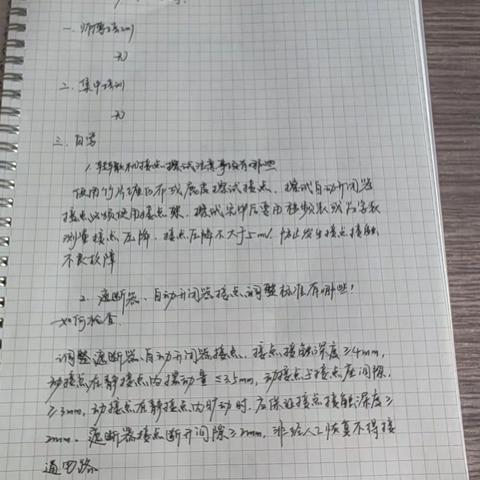 一. 师带培训
无
二. 集中培训
无
三. 自学
1. 转辙机接点擦试注意事项有哪些
使用竹片缠白布或鹿皮擦试接点、擦试自动开闭器
接点必须使用接点 擦试完毕后要用 表或万字表
测量接点压降、接点压降不大于5mV. 防止发生接点接触
不良故障
2. 遮断器、自动开闭器接点调整标准有哪些!
如何检查
调整遮断器、自动开闭器接点、接点接触深度≥4mm,
动接点在静接点内摆动量≤3.5mm, 动接点与接点座间隙
≥3mm, 动接点在静接点内窜动时, 应保证接点接触深度≥
2mm. 遮断器接点断开间隙≥2mm, 非经人工恢复不得接
通电路